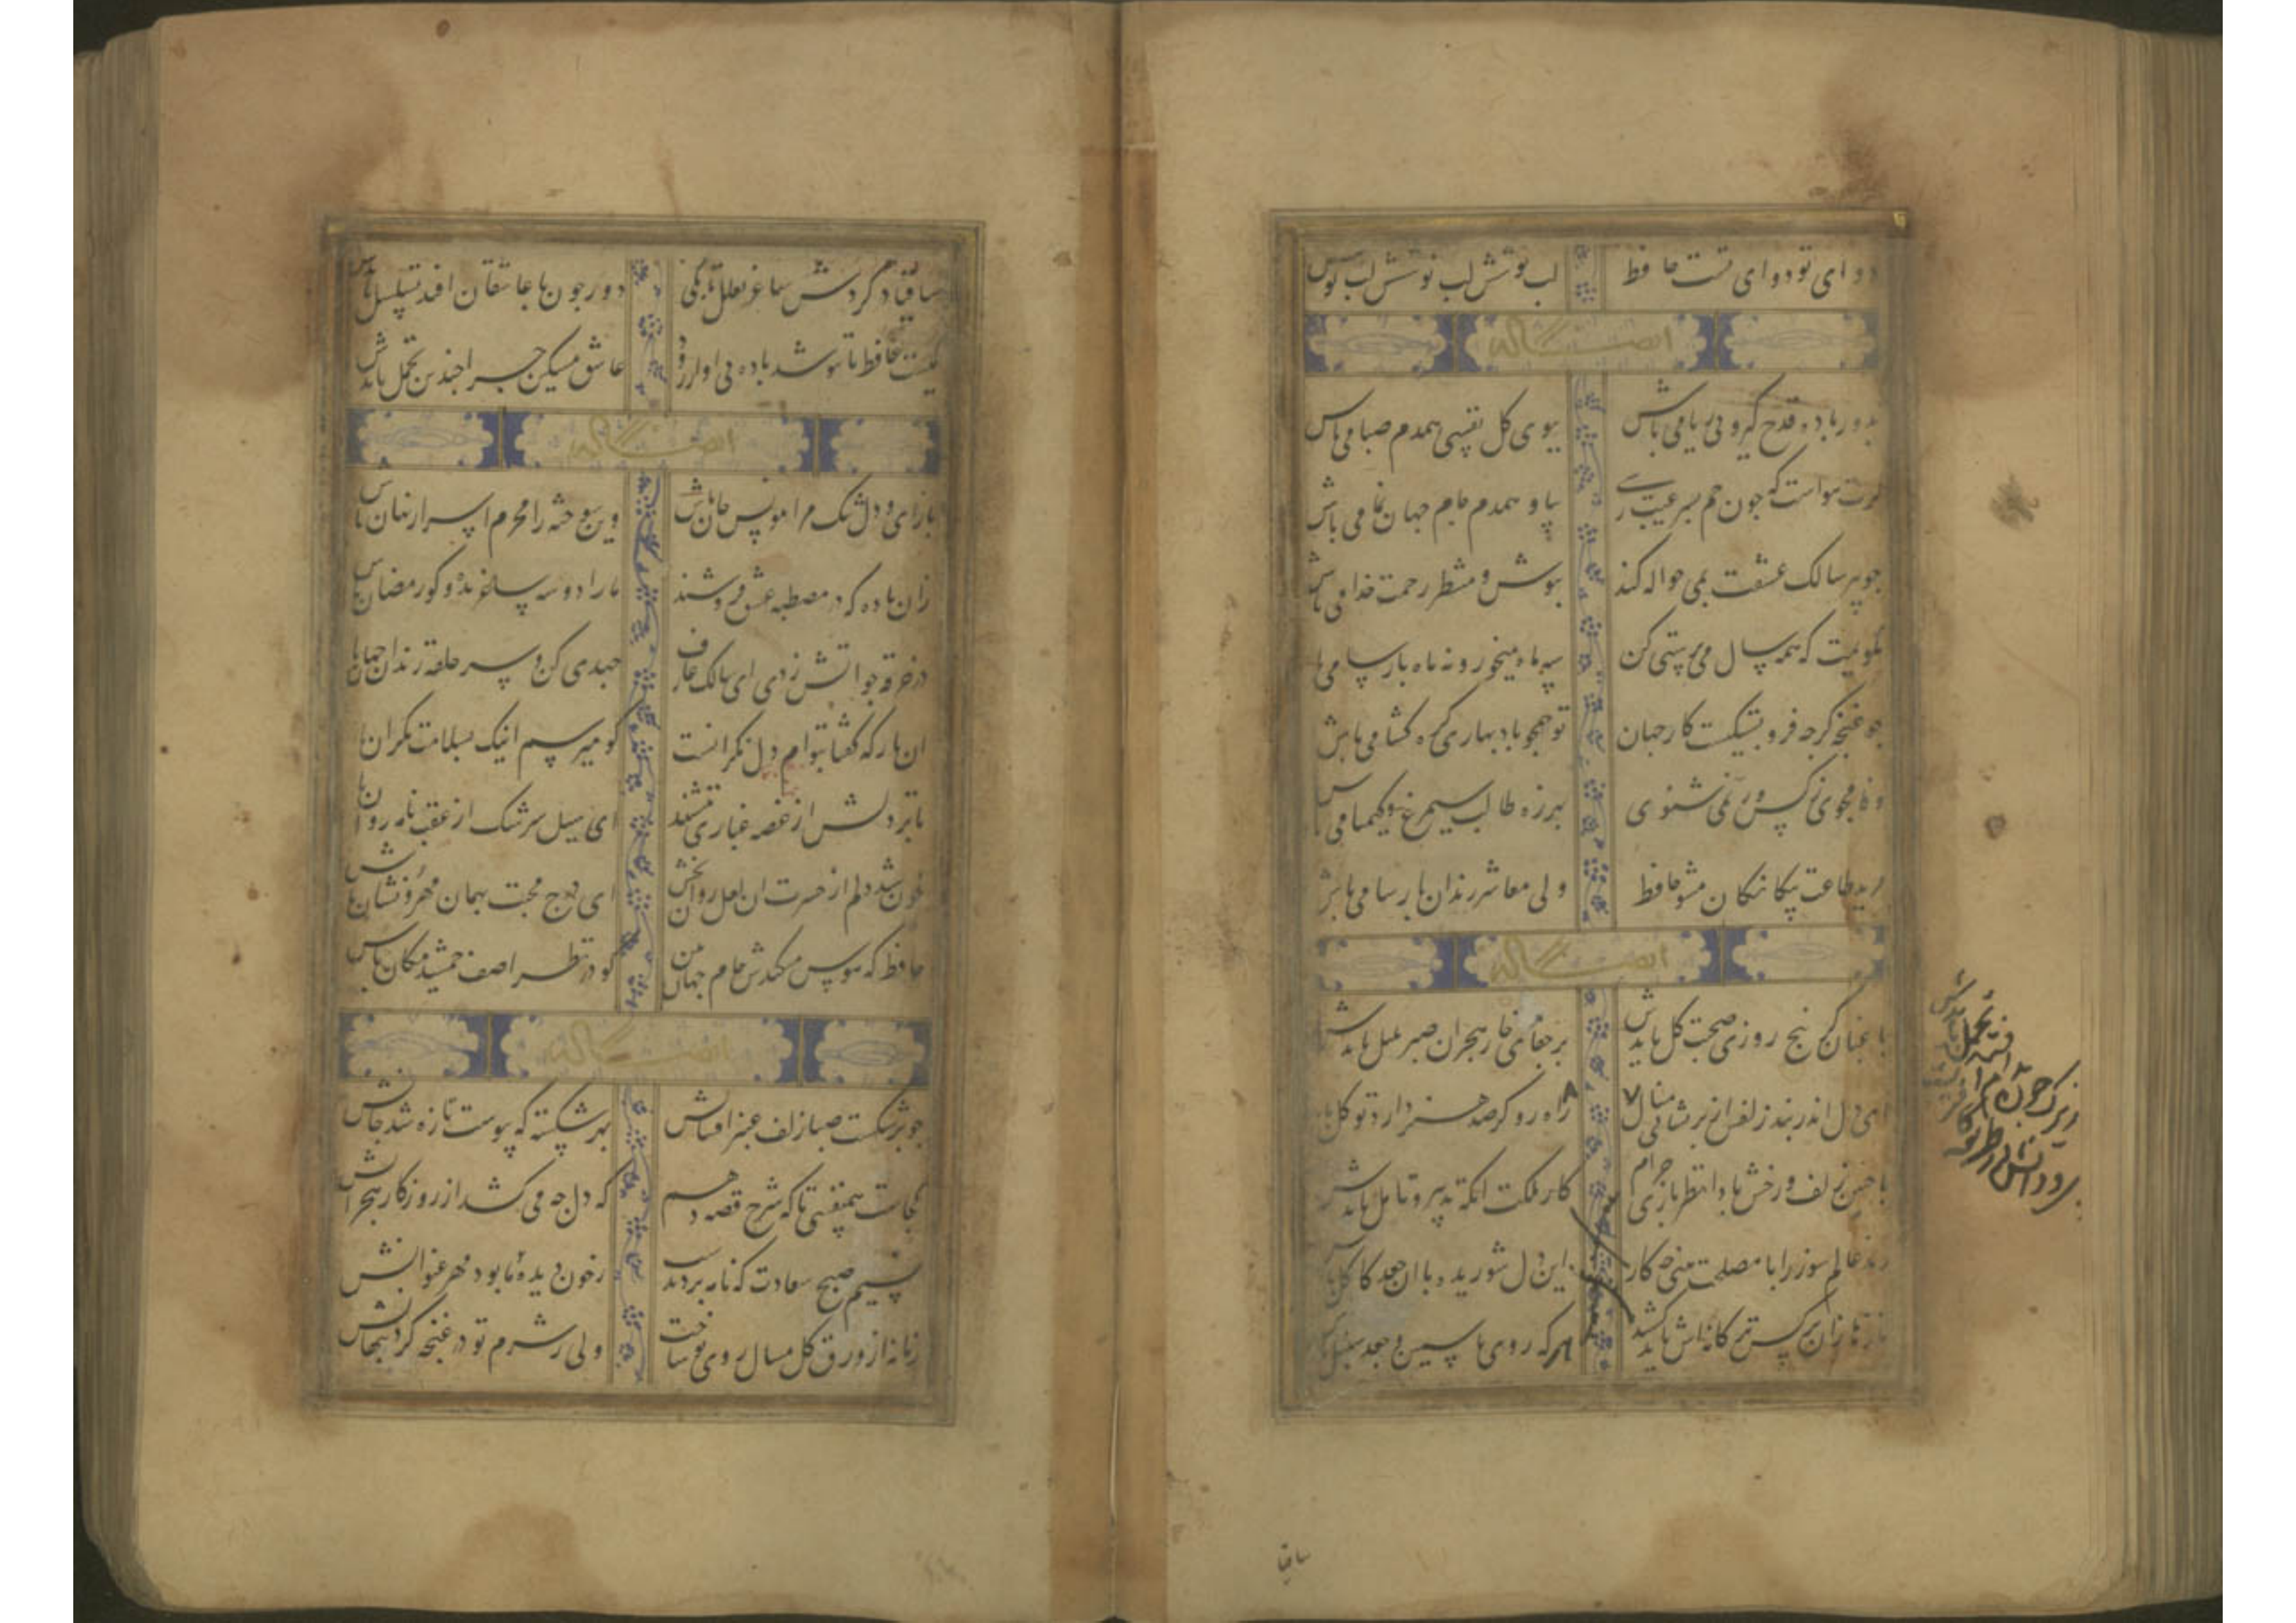 دوای تو دوای تست حافظ لب نوشش لب نوشش لب نوش
ایضا له
بدور باده قدح گیر و بی ریا می باش ببوی کل نفسی همدم صبا می باش
کرت هواست که جون جم بسر غیب رسی بیا و همدم جام جهان نما می باش
جو پیر سالک عشقت بمی حواله کند بنوش و منتظر رحمت خدا می باش
نکویمت که همه سال می پرستی کن سه ماه میخور و نه ماه پارسا می باش
جو غنجه کرجه فرو بستکیست کار جهان تو همجو باد بهاری کره کشا می باش
وفا مجوی ز کس ور نمی شنوی بهرزه طالب سیمرغ و کیمیا می باش
مرید طاعت بیکانکان مشو حافظ ولی معاشر رندان پارسا می باش
ایضا له
باغبان کر پنج روزی صحبت کل بایدش بر جفای خار هجران صبر بلبل بایدش
ای دل اندر بند زلفش از پریشانی منال راه رو کر صد هنر دارد توکل بایدش
با جنین زلف و رخش بادا نظربازی حرام
رند عالم سوز را با مصلحت بینی جه کار
نازها زان نرکس مستانه اش باید کشید این دل شوریده با آن جعد کاکل بایدش
زیرک جون دام افتد تحمل بایدش
ساقیا
ساقیا در کردش ساغر تعلل تا بکی دور جون با عاشقان افتد تسلسل بایدش
کیست حافظ تا ننوشد باده بی آواز رود عاشق مسکین جرا جندین تحمل بایدش
ایضا له
بازای و دل تنک مرا مونس جان باش وین سوخته را محرم اسرار نهان باش
زان باده که در مصطبه عشق فروشند ما را دو سه ساغر بده و کو رمضان باش
در خرقه جو آتش زدی ای سالک عارف جهدی کن و سر حلقه رندان جهان باش
ان یار که کفتا بتوام دل نکرانست کو میرسم اینک بسلامت نکران باش
تا بر دلش از غصه غباری ننشیند ای سیل سرشک از عقب نامه روان باش
خون شد دلم از حسرت ان لعل روان بخش ای درج محبت بهمان مهر و نشان باش
حافظ که هوس میکندش جام جهان بین کو در نظر اصف جمشید مکان باش
ایضا له
جو برشکست صبا زلف عنبر افشانش بهر شکسته که پیوست تازه شد جانش
کجاست همنفسی تا که شرح قصه دهم که دل جه می کشد از روزکار هجرانش
نسیم صبح سعادت که نامه برد بدوست ز خون دیده ما بود مهر عنوانش
زمانه از ورق کل مثال روی تو ساخت ولی ز شرم تو در غنجه کرد پنهانش